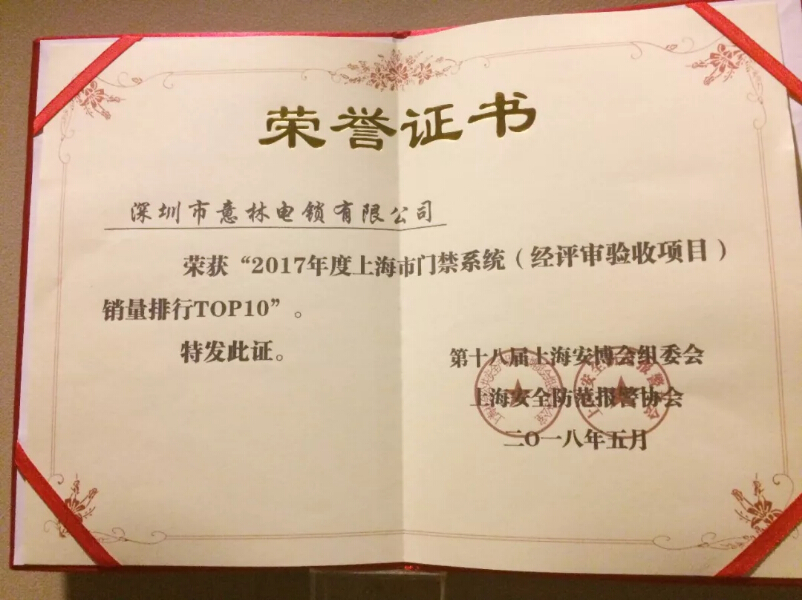 荣誉证书
深圳市意林电锁有限公司
荣获“2017年度上海市门禁系统（经评审验收项目）
销量排行TOP10”。
特发此证。
第十八届上海安博会组委会
上海安全防范报警协会
二〇一八年五月